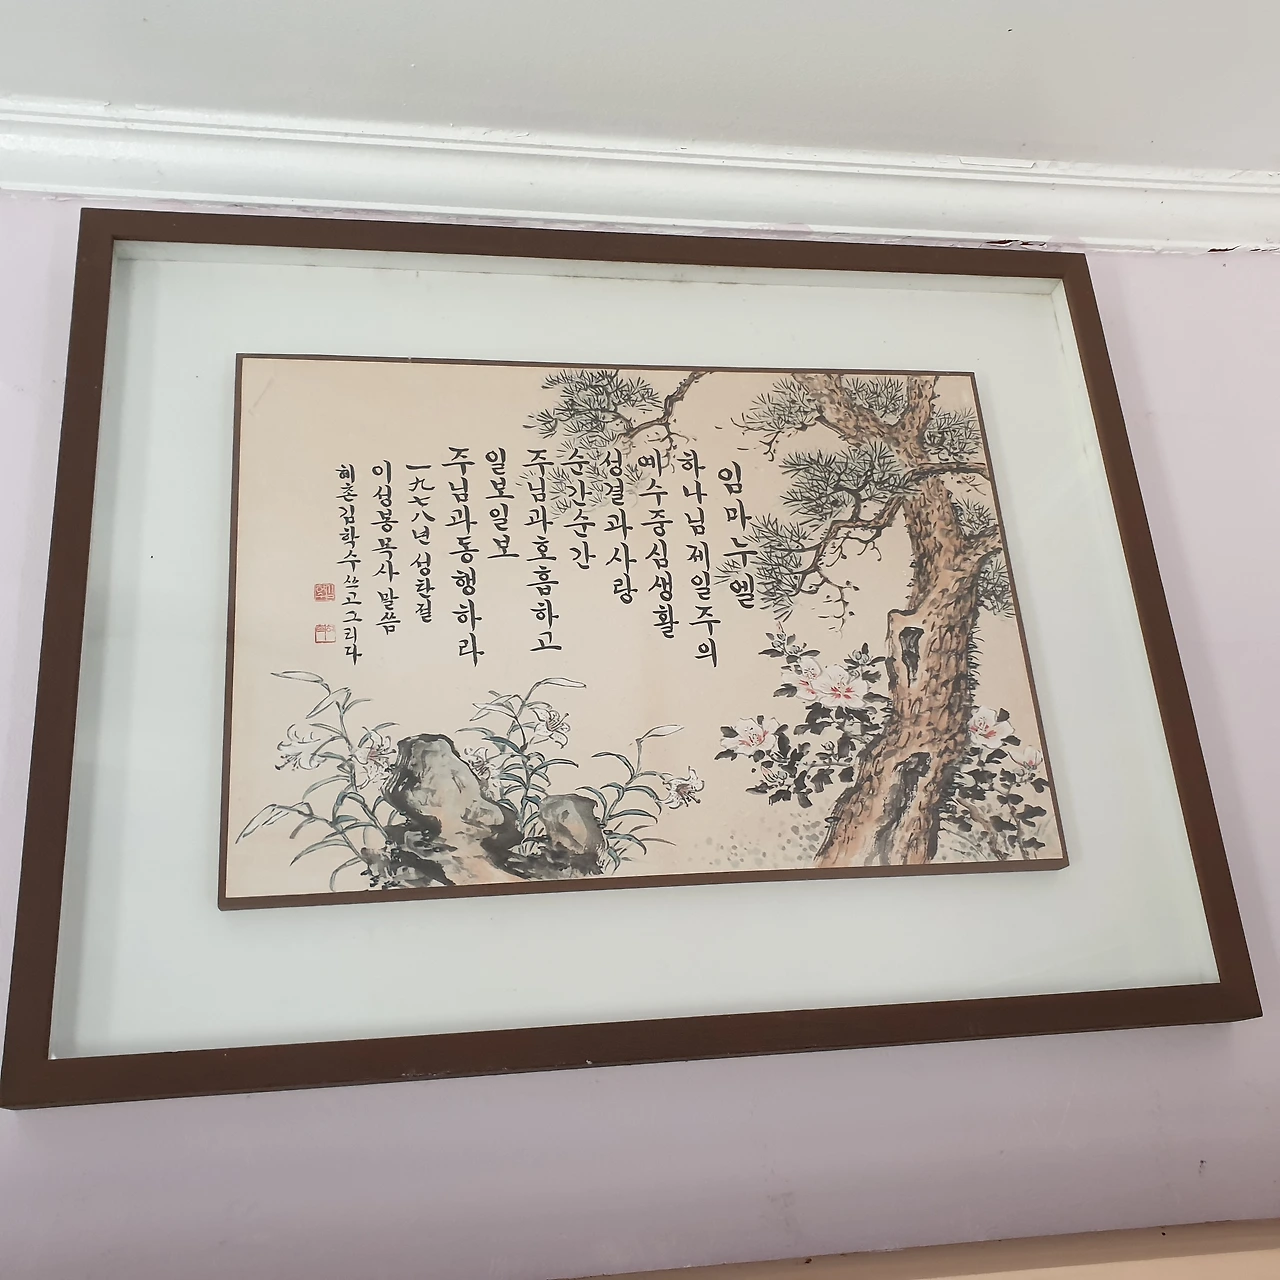 임마누엘
하나님제일주의
예수중심생활
성결과사랑
순간순간
주님과호흡하고
일보일보
주님과동행하라
一九七八년 성탄절
이성봉목사 말씀
혜촌 김학수 쓰고 그리다